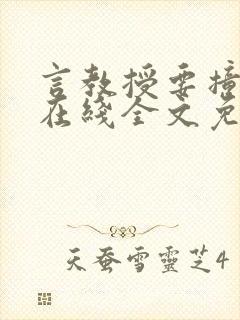 言教授要撞
在线全文免
天蚕雪靈芝4